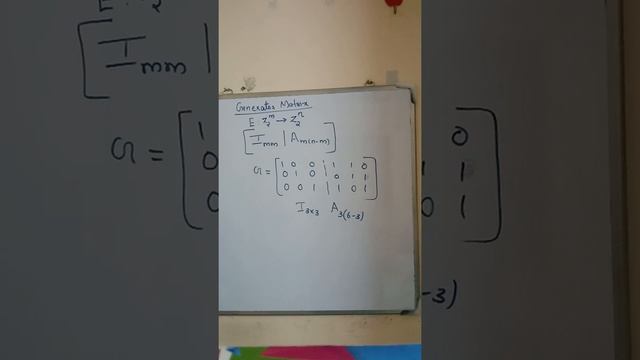 Generator Matrix
E: Z₂ᵐ → Z₂ⁿ
[I mm | A m(n-m)]
G = [1 0 0 | 1 1 0
0 1 0 | 0 1 1
0 0 1 | 1 0 1]
I 3×3 A 3(6-3)